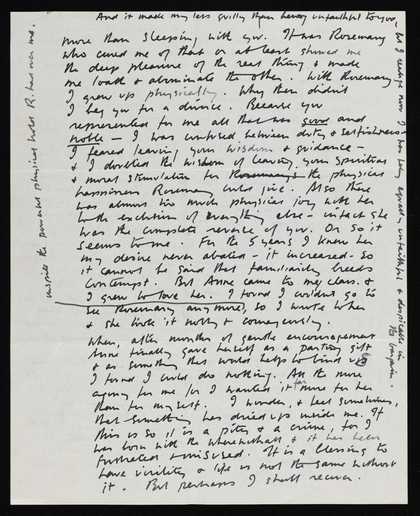 And it made me less guilty than being unfaithful to you
more than sleeping with you. It was Rosemary
who cured me of that or at least showed me
the deep pleasure of the real thing & made
me loath & abominate the other. With Rosemary
I grew up physically. Why then didn't
I beg you for a divorce. Because you
represented for me all that was good and
noble – I was confused between duty & selfishness –
I feared leaving your wisdom & guidance –
& I doubted the wisdom of leaving your spiritual
& moral stimulation for Rosemary & the physical
happiness Rosemary could give. Also there
was almost too much physical joy with her
to the exclusion of everything else – in fact she
was the complete reverse of you. Or so it
seems to me. For the 5 years I knew her
my desire never abated – it increased. So
it cannot be said that familiarity breeds
contempt. But Anne came to my class &
I grew to love her. I found I couldn't go to
see Rosemary any more, so I wrote when
& she took it nobly & courageously.
When, after months of gentle encouragement
Anne finally gave herself as a parting gift
& as something that would help to bind us
I found I could do nothing. All the more
agony for me for I wanted it more for her
than for myself. I wonder, & feel sometimes,
that something has dried up inside me. If
this is so it is a pity & a crime, for I
was born with the wherewithall & it has been
frustrated & misused. It is a blessing to
have virility & life is not the same without
it. But perhaps I shall recover.
but I realise now I was being equally unfaithful & despicable in
the bargain.
inspite the powerful physical hold R. had over me.